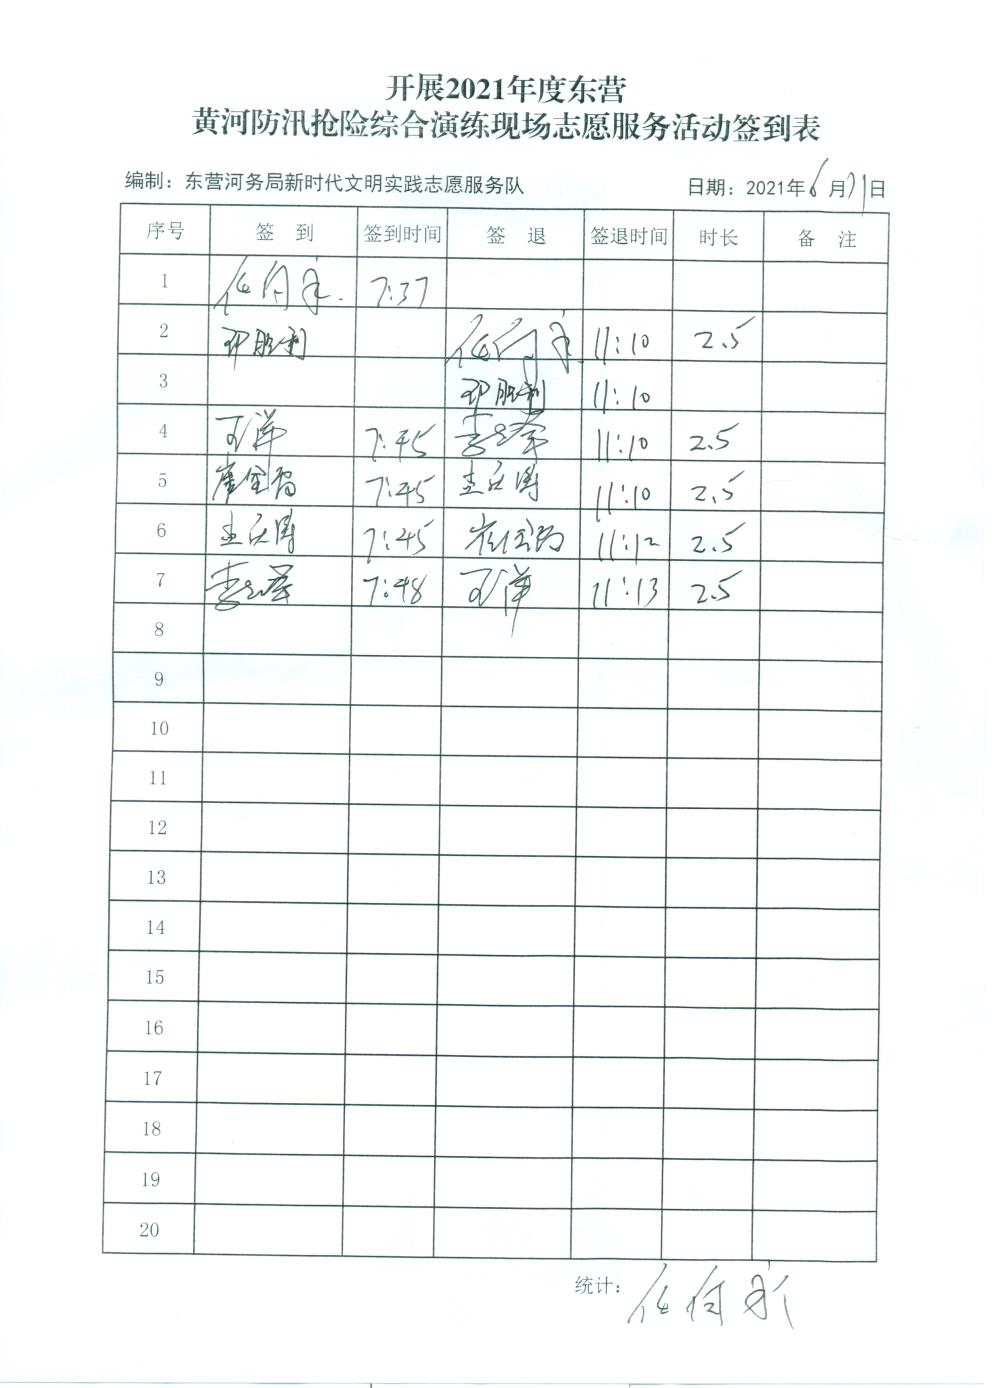 开展2021年度东营
黄河防汛抢险综合演练现场志愿服务活动签到表
编制：东营河务局新时代文明实践志愿服务队 日期：2021年6月21日
序号 签 到 签到时间 签 退 签退时间 时长 备 注
1 7:37
2 邓胜利 11:10 2.5
3 邓胜利 11:10
4 王萍 7:45 11:10 2.5
5 7:45 王庆涛 11:10 2.5
6 王庆涛 7:45 11:12 2.5
7 7:48 王萍 11:13 2.5
8
9
10
11
12
13
14
15
16
17
18
19
20
统计：